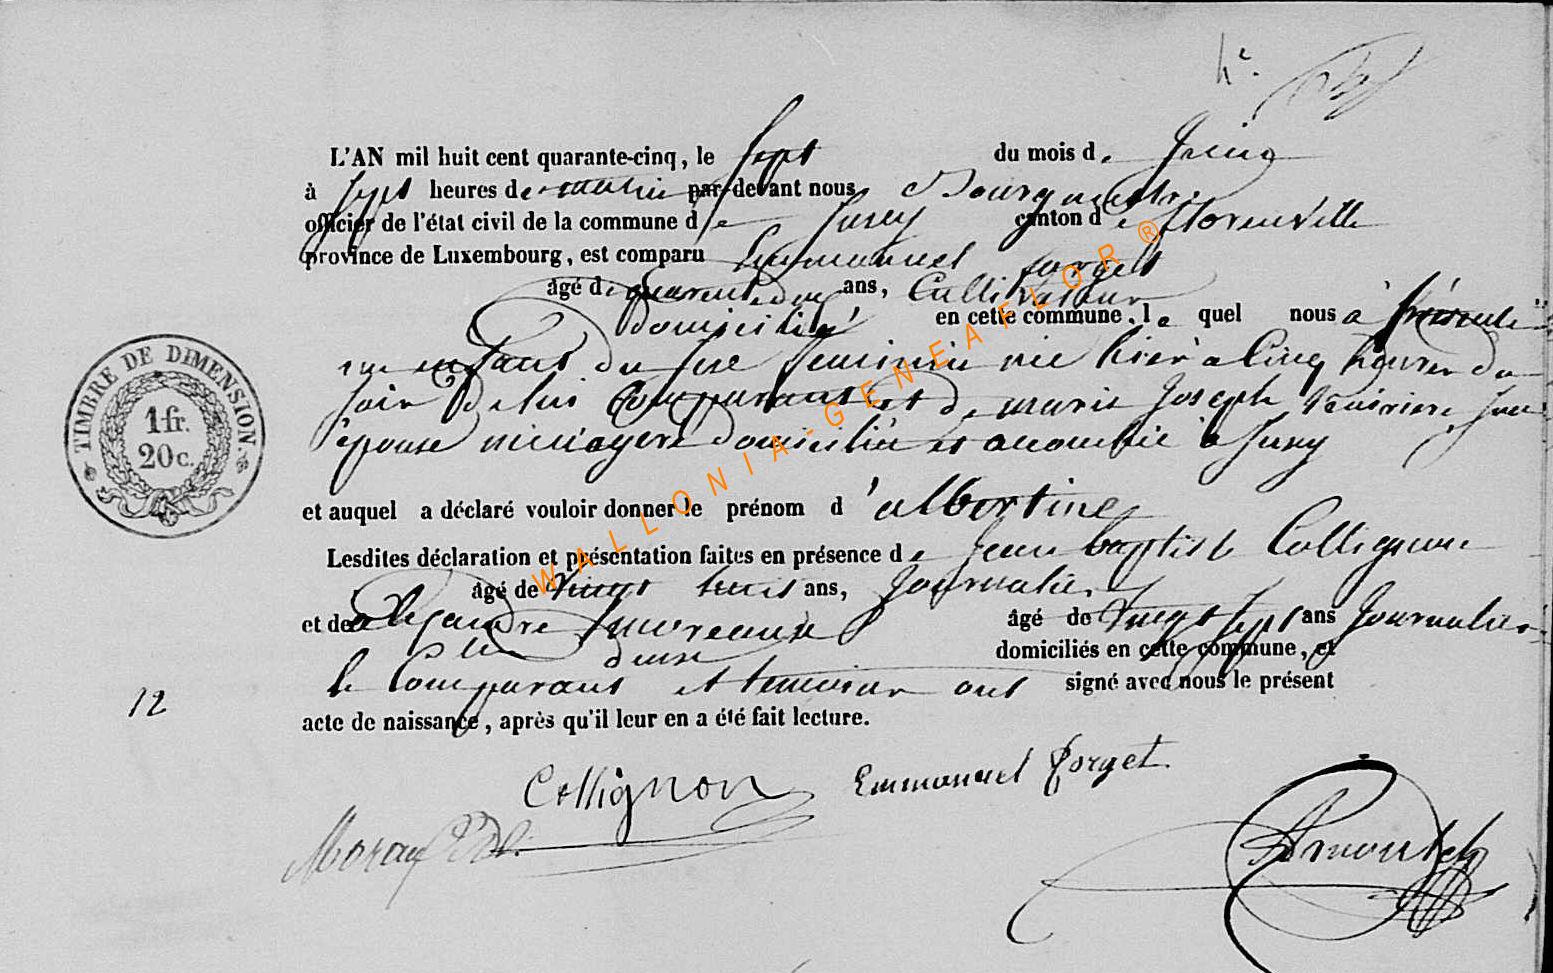 L'AN mil huit cent quarante-cinq, le sept du mois de juin
à sept heures de matin par-devant nous Bourgmestre
officier de l'état civil de la commune de Suxy canton de florenville
province de Luxembourg, est comparu Emmanuel forget
âgé de quarante deux ans, Cultivateur
domicilié en cette commune, le quel nous à présenté
un enfant du sexe feminin née hier à Cinq heures du
soir de lui Comparant et de marie Joseph
épouse menagere domiciliée et accouchée à Suxy
et auquel a déclaré vouloir donner le prénom d'albertine
Lesdites déclaration et présentation faites en présence de jean baptist Collignon
âgé de vingt trois ans, journalier
et de alexandre moreaux âgé de vingt sept ans journalier
domiciliés en cette commune, et
le Comparant et temoins ont signé avec nous le présent
acte de naissance, après qu'il leur en a été fait lecture.
12
TIMBRE DE DIMENSION
1 fr.
20 c.
Collignon Emmanuel forget
WALLONIA-GENEAFLOR ®